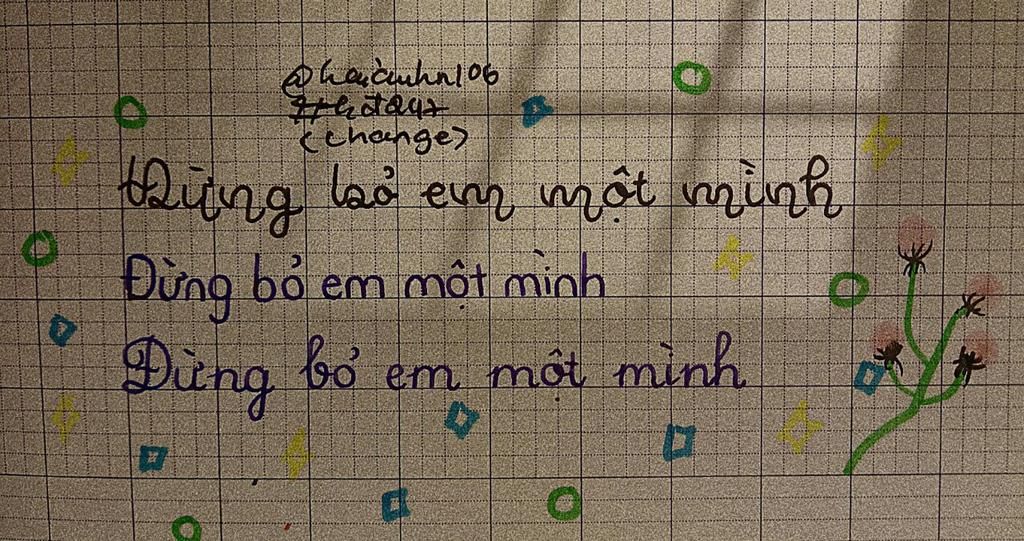 (change)
Đừng bỏ em một mình
Đừng bỏ em một mình
Đừng bỏ em một mình